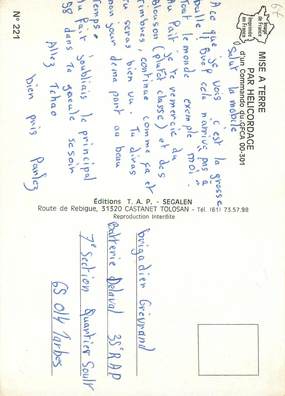 N° 221
MISE A TERRE
PAR HÉLICORDAGE
d'un commando du CPCA 00/301
Imprimé en France
67
Salut la mobile
A ce que je vois c'est la grosse
bulle !! Buep cela n'arrive pas à
tout le monde exemple moi.
Au fait je te remercie du
blouson (plutôt classe) et des
timbres, continue comme ça et
tu seras bien vu. Tu diras
nom jour dema pont au beau
temps.
Au fait j'oubliais le principal
98 dans ta gueule ce soir
Allez Tchao
bien puis
Éditions T. A. P. - SEGALEN
Route de Rebigue, 31320 CASTANET TOLOSAN - Tél. (61) 73.57.98
Reproduction Interdite
brigadier Greyrand
Batterie Delaval 35° RAP
7° Section Quartier Soult
65 014 Tarbes